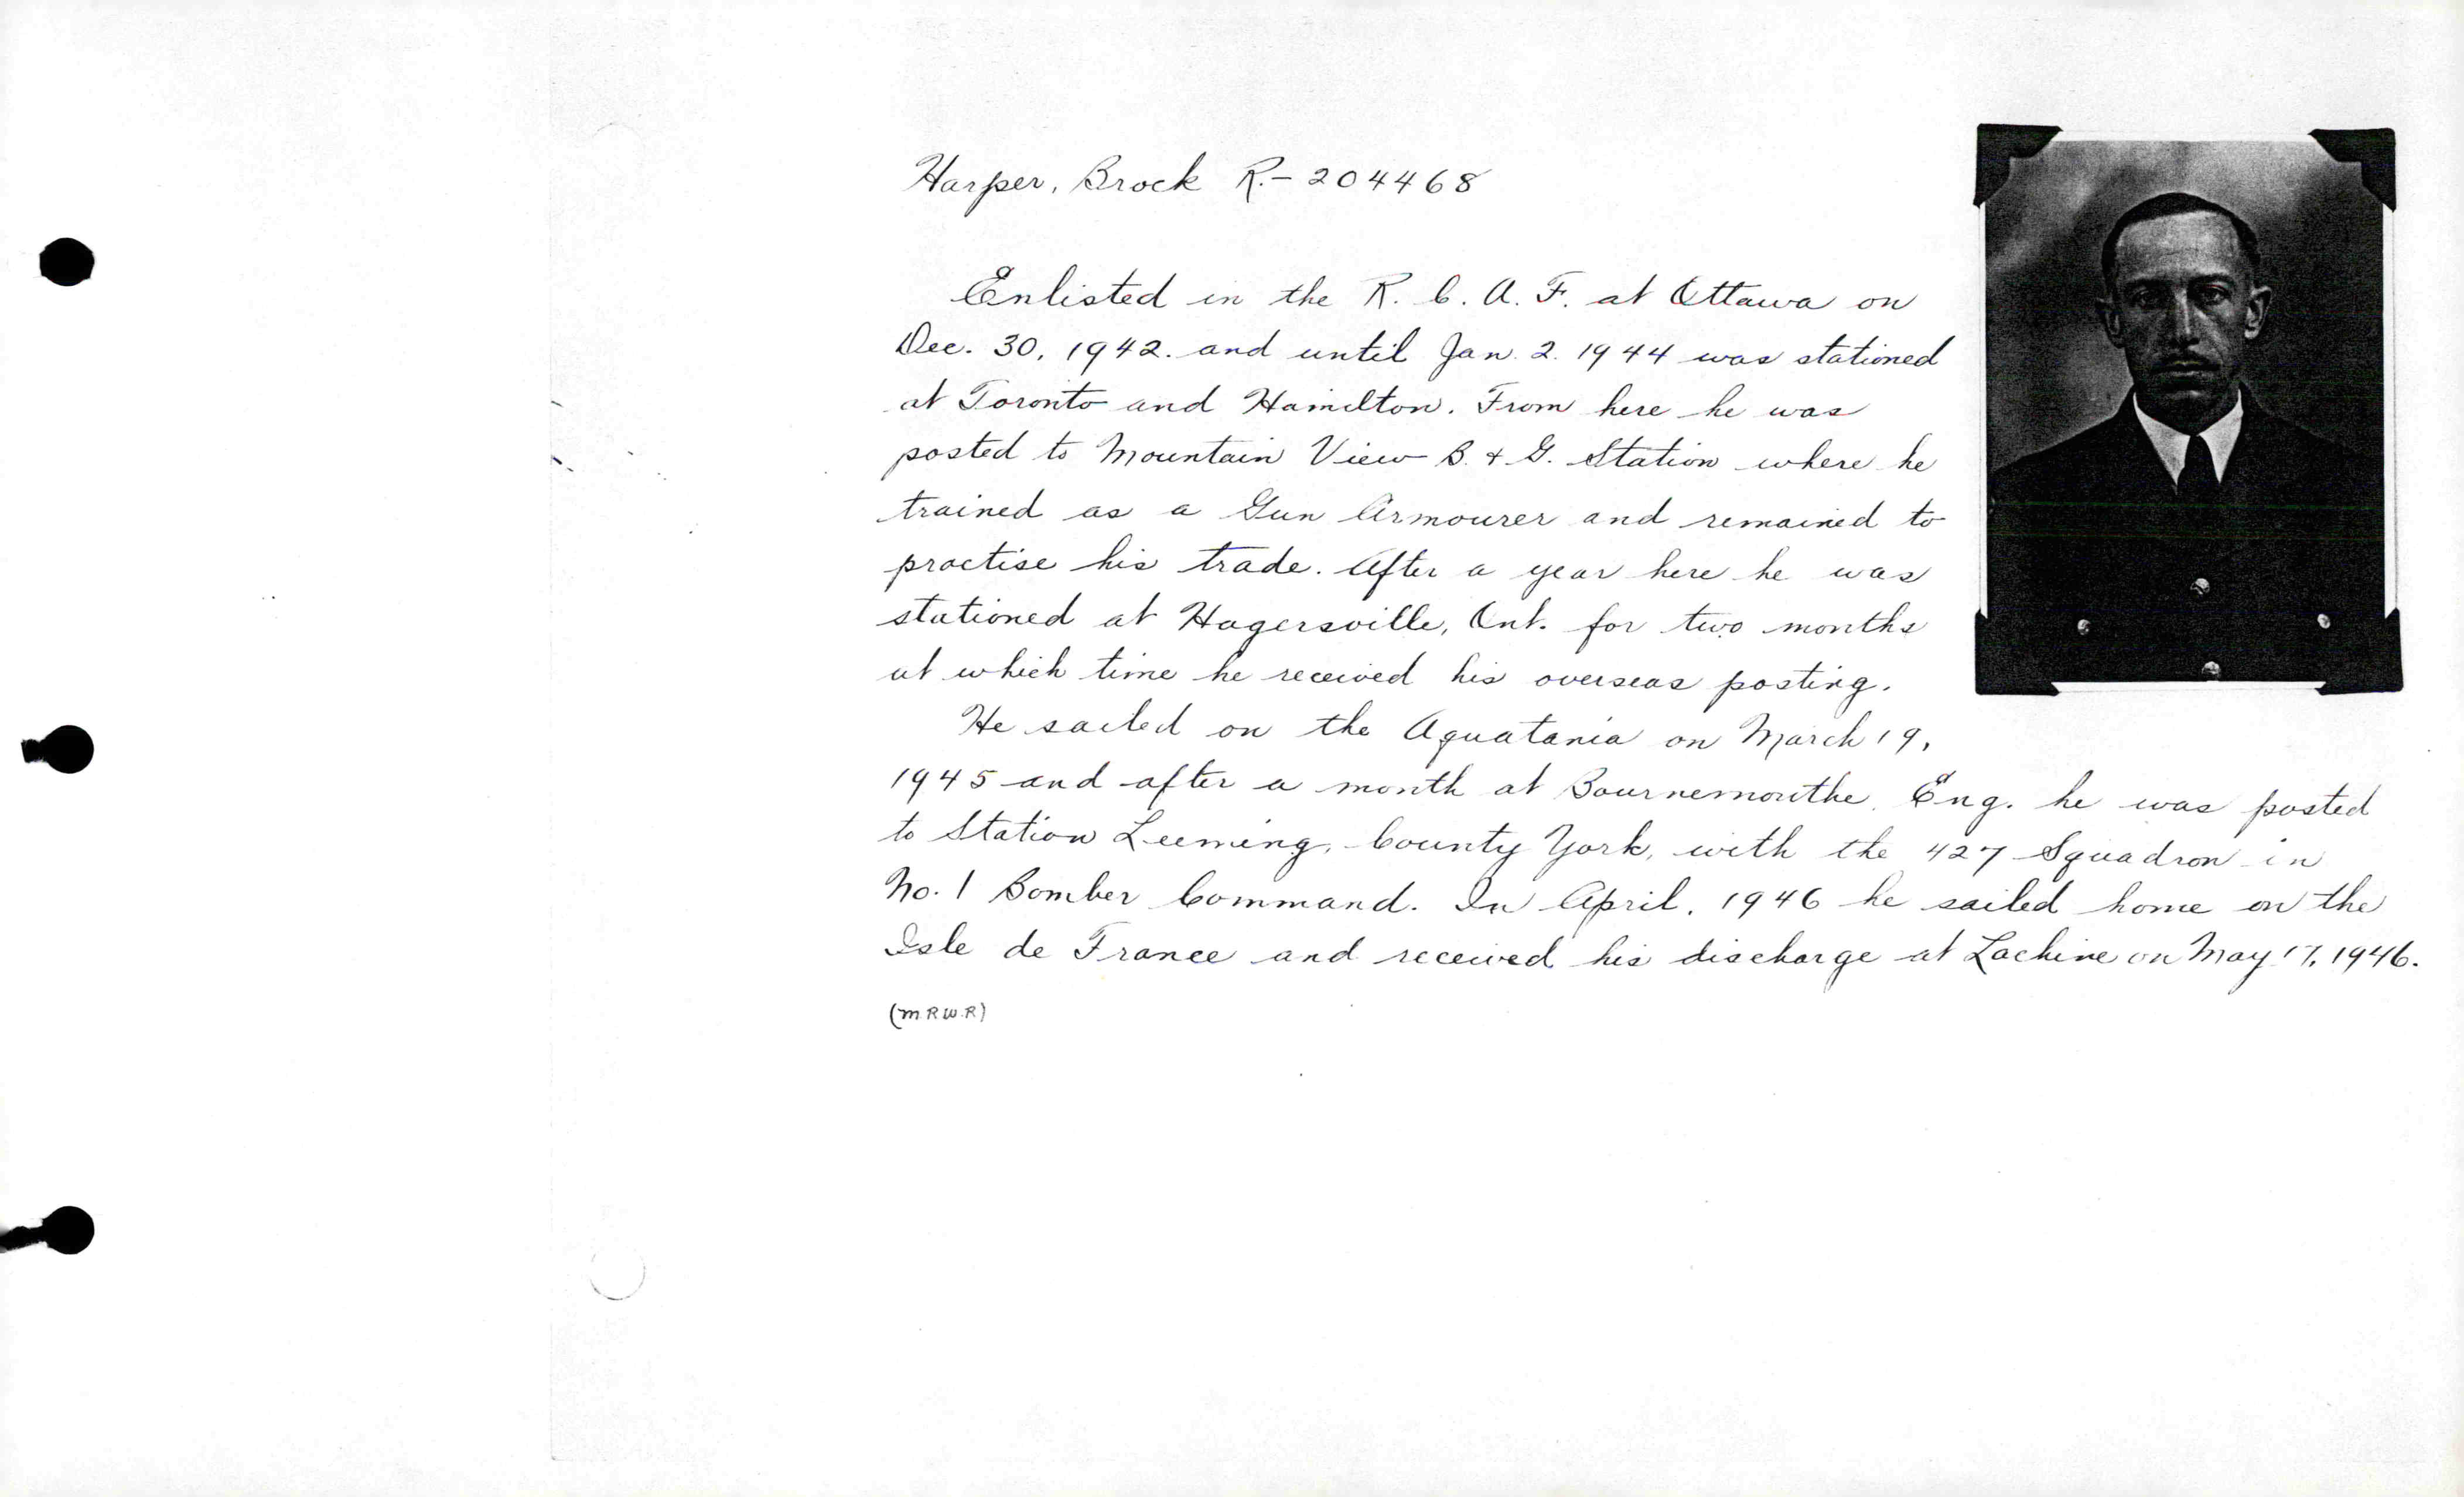 Harper, Brock R.- 204468
Enlisted in the R. C. A. F. at Ottawa on
Dec. 30, 1942. and until Jan. 2. 1944 was stationed
at Toronto and Hamilton. From here he was
posted to Mountain View B. & G. Station where he
trained as a Gun Armourer and remained to
practise his trade. After a year here he was
stationed at Hagersville, Ont. for two months
at which time he received his overseas posting.
He sailed on the Aquatania on March 19,
1945 and after a month at Bournemouthe, Eng. he was posted
to Station Leeming, County York, with the 427 Squadron in
No. 1 Bomber Command. In April, 1946 he sailed home on the
Isle de France and received his discharge at Lachine on May 17, 1946.
(M.R.W.R)